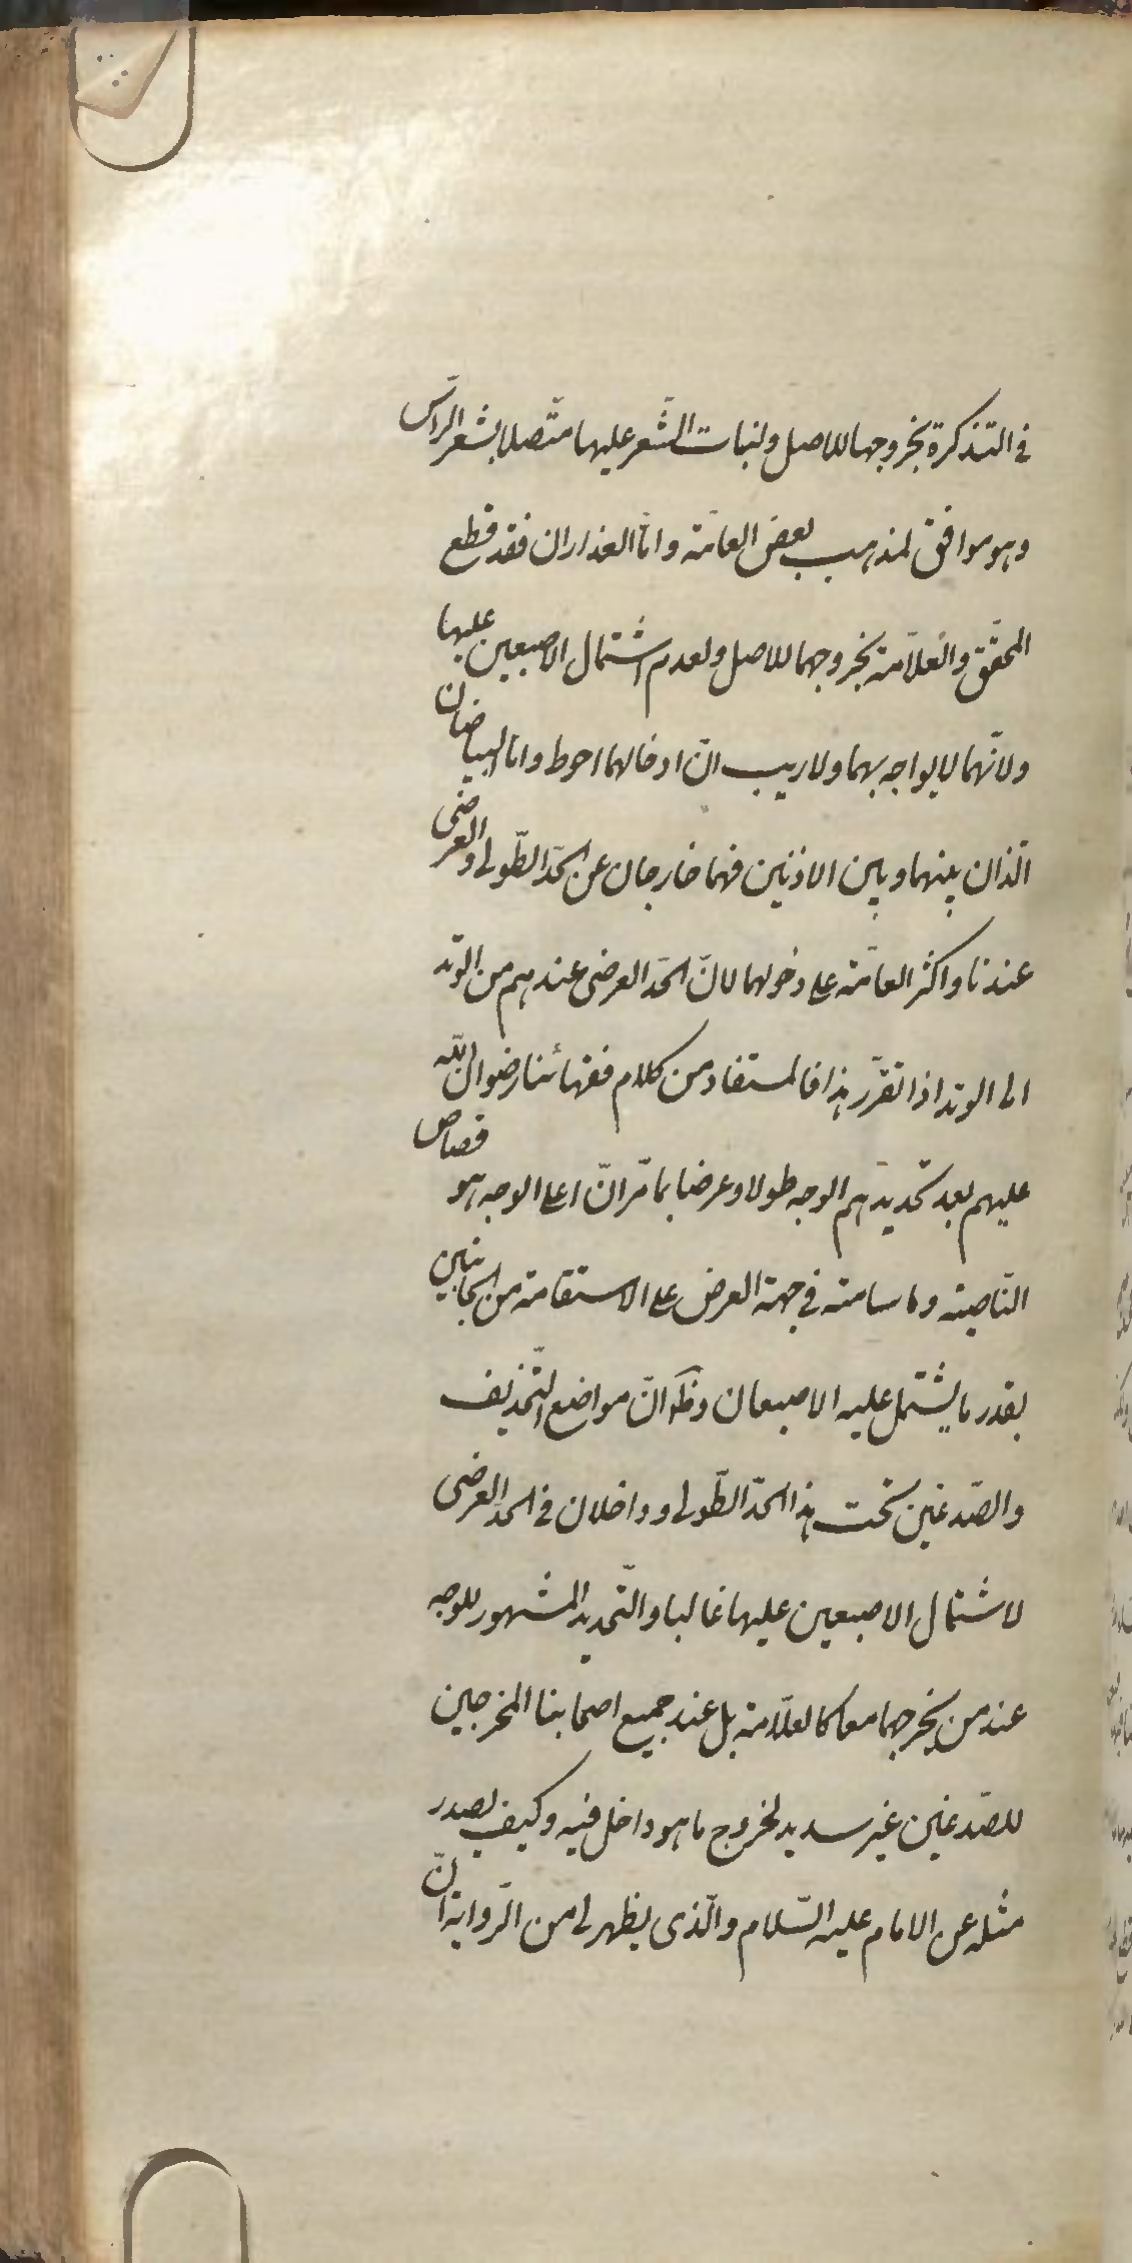 في التذكرة بخروجها للاصل ولنبات الشّعر عليها متّصلا بشعر الرّاس
وهو موافق لمذهب بعض العامّة وامّا العذاران فقد قطع
المحقّق والعلّامة بخروجهما للاصل ولعدم اشتمال الاصبعين عليها
ولانّهما لا يواجه بهما ولا ريب انّ ادخالهما احوط وامّا البياضان
الّذان بينهما وبين الاذنين فهما خارجان عن الحدّ الطّولي والعرضى
عندنا واكثر العامّة على دخولهما لانّ الحدّ العرضى عندهم من الوتد
الى الوتد اذا تقرّر هذا فالمستفاد من كلام فقهائنا رضوان اللّه
عليهم بعد تحديدهم الوجه طولا وعرضا بما مرّ انّ اعلى الوجه هو قصاص
النّاصية وما سامته في جهة العرض على الاستقامة من الجانبين
بقدر ما يشتمل عليه الاصبعان وظ انّ مواضع التّحذيف
والصّدغين تحت هذا الحدّ الطّولى و داخلان في الحدّ العرضى
لاشتمال الاصبعين عليها غالبا والتّحديد المشهور للوجه
عند من يخرجهما معا كالعلّامة بل عند جميع اصحابنا المخرجين
للصّدغين غير سديد لخروج ما هو داخل فيه وكيف يصدر
مثله عن الامام عليه السّلام والّذى يظهر لى من الرّواية انّ